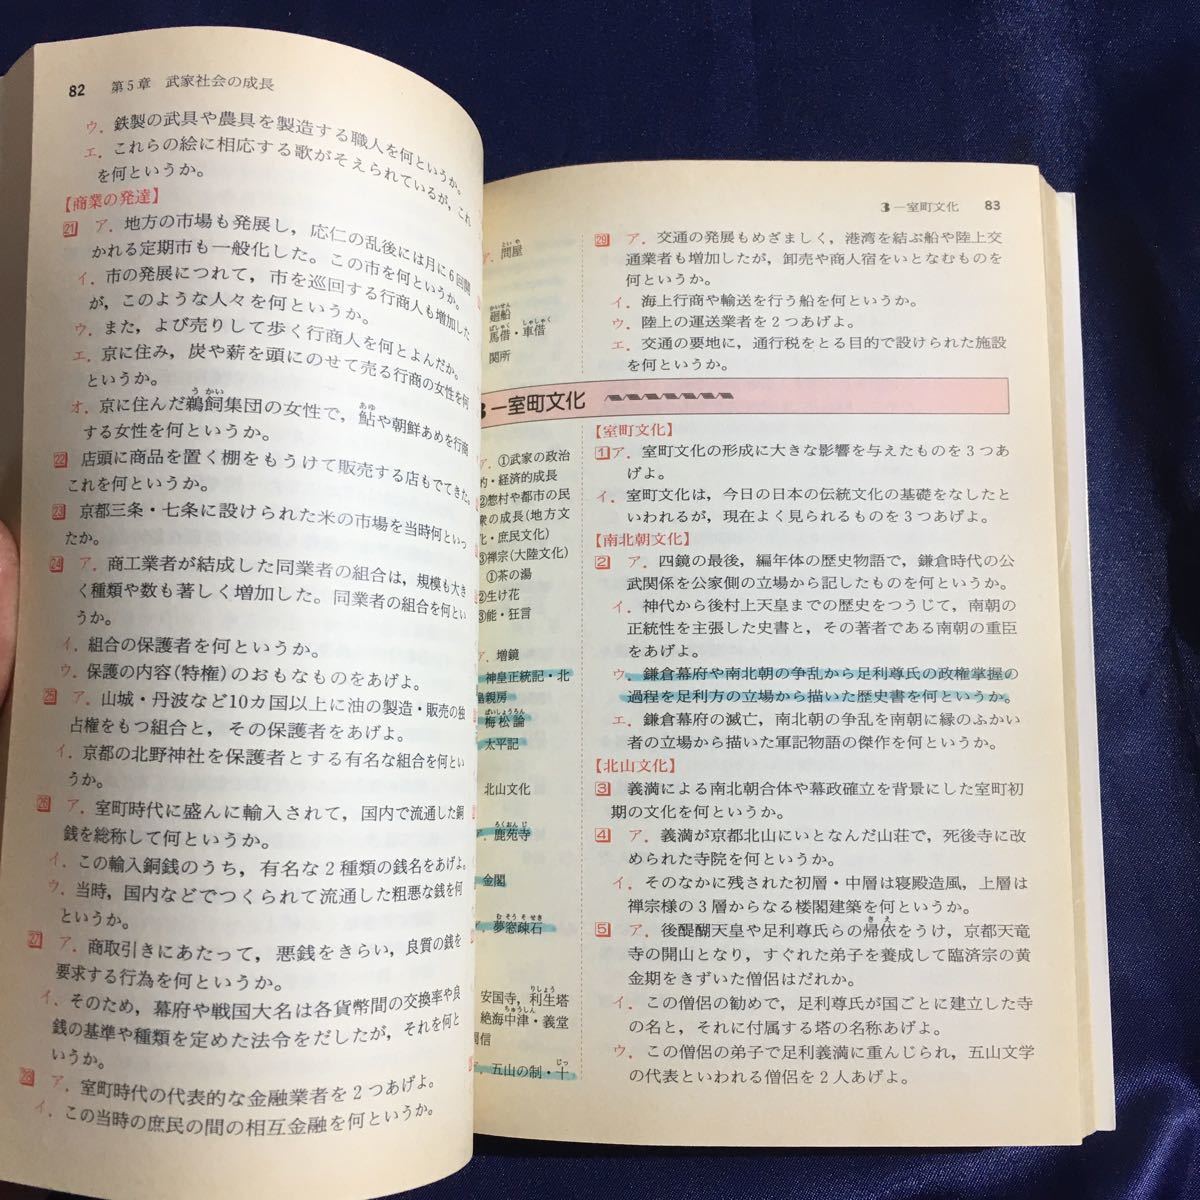 82 第5章 武家社会の成長
ウ．鉄製の武具や農具を製造する職人を何というか。
エ．これらの絵に相応する歌がそえられているが，これ
を何というか。
【商業の発達】
21 ア．地方の市場も発展し，応仁の乱後には月に6回開
かれる定期市も一般化した。この市を何というか。
イ．市の発展につれて，市を巡回する行商人も増加した
が，このような人々を何というか。
ウ．また，よび売りして歩く行商人を何とよんだか。
エ．京に住み，炭や薪を頭にのせて売る行商の女性を何
というか。
オ．京に住んだ鵜飼集団の女性で，鮎や朝鮮あめを行商
する女性を何というか。
22 店頭に商品を置く棚をもうけて販売する店もでてきた。
これを何というか。
23 京都三条・七条に設けられた米の市場を当時何といっ
たか。
24 ア．商工業者が結成した同業者の組合は，規模も大き
く種類や数も著しく増加した。同業者の組合を何とい
うか。
イ．組合の保護者を何というか。
ウ．保護の内容(特権)のおもなものをあげよ。
25 ア．山城・丹波など10カ国以上に油の製造・販売の独
占権をもつ組合と，その保護者をあげよ。
イ．京都の北野神社を保護者とする有名な組合を何とい
うか。
26 ア．室町時代に盛んに輸入されて，国内で流通した銅
銭を総称して何というか。
イ．この輸入銅銭のうち，有名な2種類の銭名をあげよ。
ウ．当時，国内などでつくられて流通した粗悪な銭を何
というか。
27 ア．商取引きにあたって，悪銭をきらい，良質の銭を
要求する行為を何というか。
イ．そのため，幕府や戦国大名は各貨幣間の交換率や良
銭の基準や種類を定めた法令をだしたが，それを何と
いうか。
28 ア．室町時代の代表的な金融業者を2つあげよ。
イ．この当時の庶民の間の相互金融を何というか。
3―室町文化 83
ア．問屋
といや
廻船
かいせん
馬借・車借
ばしゃく しゃしゃく
関所
29 ア．交通の発展もめざましく，港湾を結ぶ船や陸上交
通業者も増加したが，卸売や商人宿をいとなむものを
何というか。
イ．海上行商や輸送を行う船を何というか。
ウ．陸上の運送業者を2つあげよ。
エ．交通の要地に，通行税をとる目的で設けられた施設
を何というか。
3―室町文化
ア．①武家の政治
的・経済的成長
②惣村や都市の民
衆の成長(地方文
化・庶民文化)
③禅宗(大陸文化)
①茶の湯
②生け花
③能・狂言
ア．増鏡
神皇正統記・北
畠親房
梅松論
ばいしょうろん
太平記
北山文化
ア．鹿苑寺
ろくおんじ
金閣
夢窓疎石
むそうそせき
安国寺，利生塔
りしょう
絶海中津・義堂
ちゅうしん
周信
ア．五山の制・十
じっ
【室町文化】
1 ア．室町文化の形成に大きな影響を与えたものを3つあ
げよ。
イ．室町文化は，今日の日本の伝統文化の基礎をなしたと
いわれるが，現在よく見られるものを3つあげよ。
【南北朝文化】
2 ア．四鏡の最後，編年体の歴史物語で，鎌倉時代の公
武関係を公家側の立場から記したものを何というか。
イ．神代から後村上天皇までの歴史をつうじて，南朝の
正統性を主張した史書と，その著者である南朝の重臣
をあげよ。
ウ．鎌倉幕府や南北朝の争乱から足利尊氏の政権掌握の
過程を足利方の立場から描いた歴史書を何というか。
エ．鎌倉幕府の滅亡，南北朝の争乱を南朝に縁のふかい
者の立場から描いた軍記物語の傑作を何というか。
【北山文化】
3 義満による南北朝合体や幕政確立を背景にした室町初
期の文化を何というか。
4 ア．義満が京都北山にいとなんだ山荘で，死後寺に改
められた寺院を何というか。
イ．そのなかに残された初層・中層は寝殿造風，上層は
禅宗様の3層からなる楼閣建築を何というか。
5 ア．後醍醐天皇や足利尊氏らの帰依をうけ，京都天竜
寺の開山となり，すぐれた弟子を養成して臨済宗の黄
金期をきずいた僧侶はだれか。
イ．この僧侶の勧めで，足利尊氏が国ごとに建立した寺
の名と，それに付属する塔の名称あげよ。
ウ．この僧侶の弟子で足利義満に重んじられ，五山文学
の代表といわれる僧侶を2人あげよ。